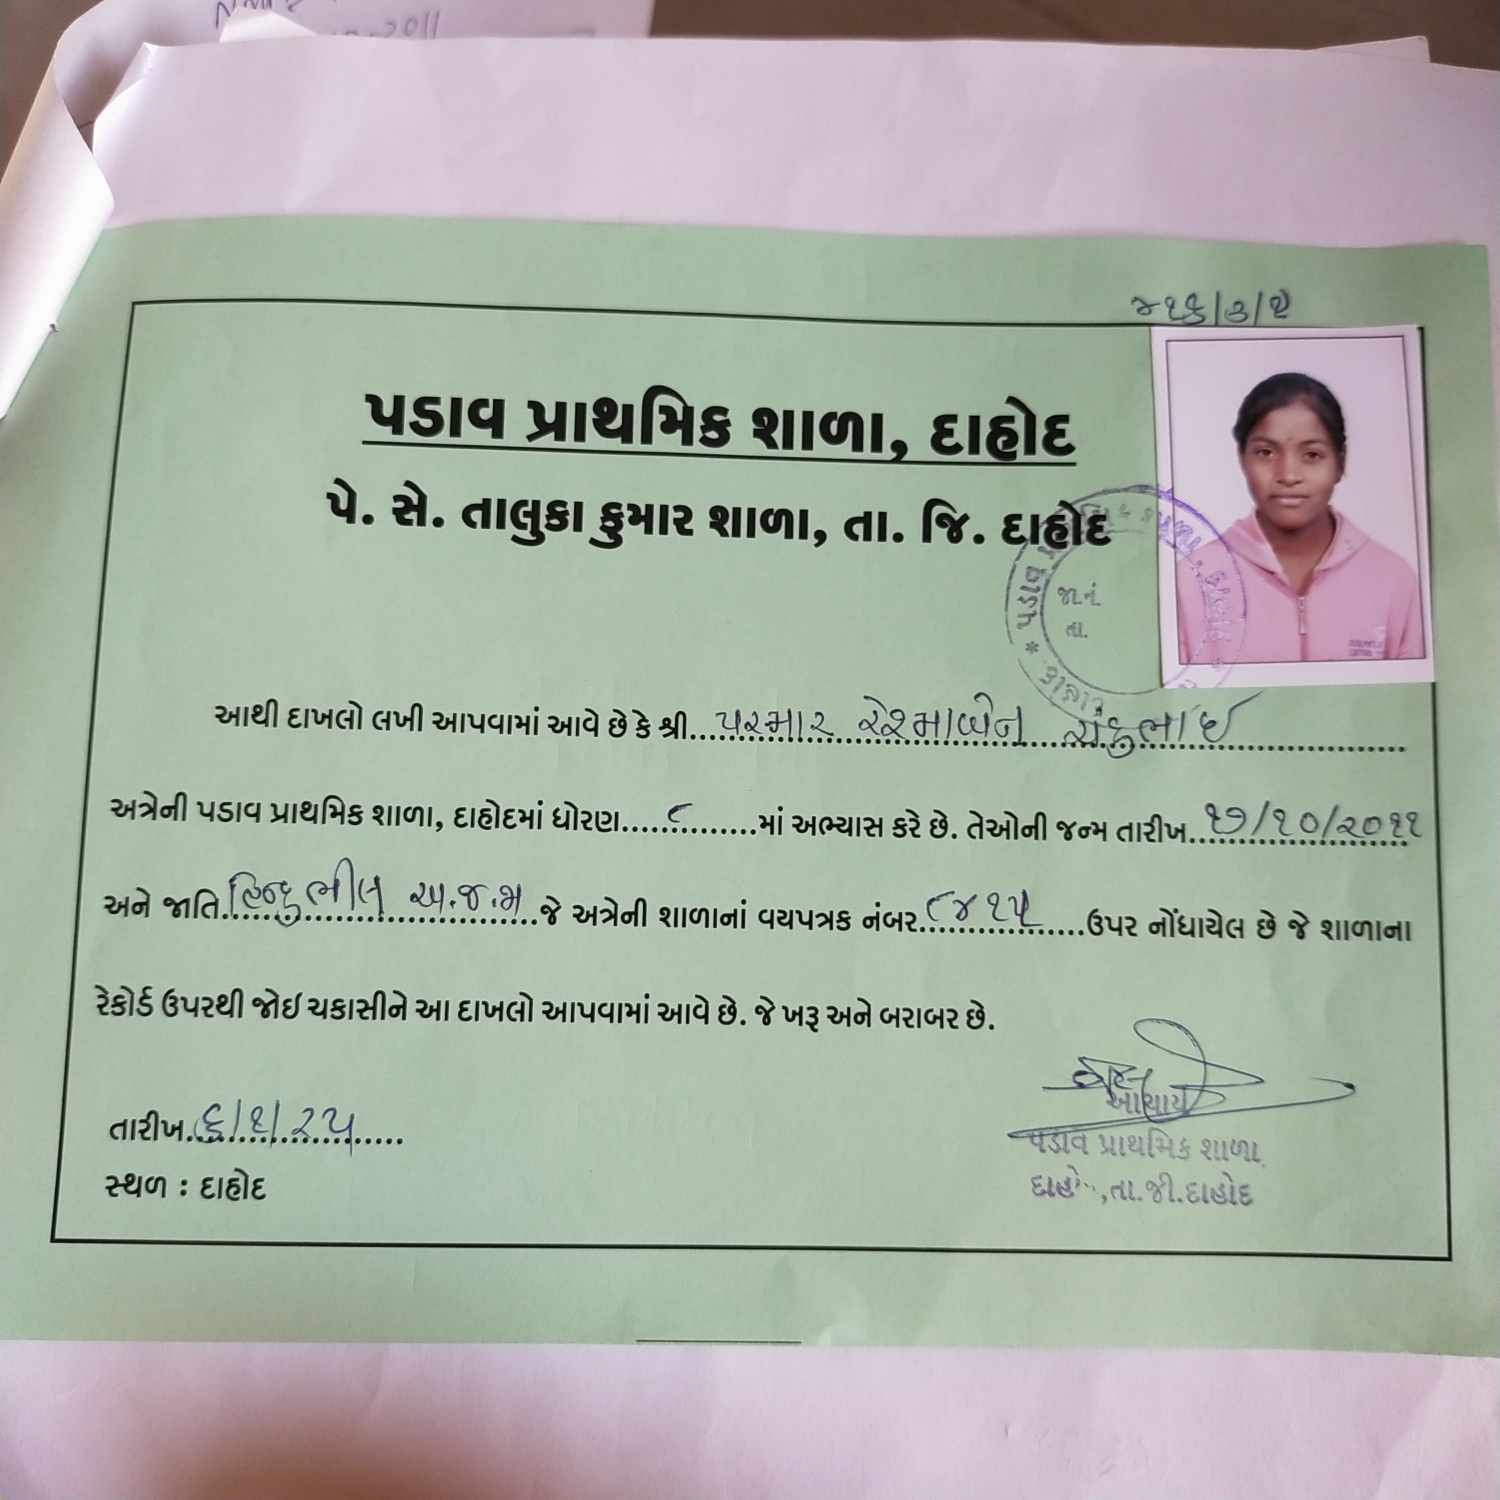 2011
૪૧૬/૭/૨
પડાવ પ્રાથમિક શાળા, દાહોદ
પે. સે. તાલુકા કુમાર શાળા, તા. જિ. દાહોદ
જા.નં.
તા.
આથી દાખલો લખી આપવામાં આવે છે કે શ્રી પરમાર રેશ્માબેન ચંદુભાઇ
અત્રેની પડાવ પ્રાથમિક શાળા, દાહોદમાં ધોરણ ૮ માં અભ્યાસ કરે છે. તેઓની જન્મ તારીખ ૧૭/૧૦/૨૦૧૧
અને જાતિ હિન્દુ ભીલ અ.જ.જા જે અત્રેની શાળાનાં વયપત્રક નંબર ૮૪૧૫ ઉપર નોંધાયેલ છે જે શાળાના
રેકોર્ડ ઉપરથી જોઇ ચકાસીને આ દાખલો આપવામાં આવે છે. જે ખરૂ અને બરાબર છે.
તારીખ ૬/૧/૨૫
સ્થળ : દાહોદ
આચાર્ય
પડાવ પ્રાથમિક શાળા
દાહોદ,તા.જી.દાહોદ